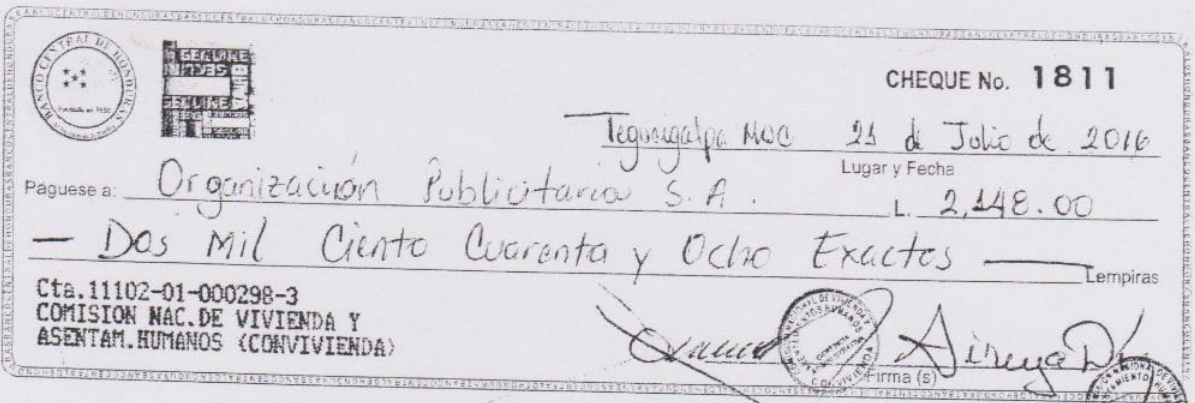 BANCO CENTRAL DE HONDURAS
Fundado en 1950
CHEQUE No. 1811
Tegucigalpa MDC 21 de Julio de 2016
Lugar y Fecha
Páguese a: Organización Publicitaria S.A.
L. 2,148.00
— Dos Mil Ciento Cuarenta y Ocho Exactos —
Lempiras
Cta.11102-01-000298-3
COMISION NAC.DE VIVIENDA Y
ASENTAM.HUMANOS (CONVIVIENDA)
Firma (s)